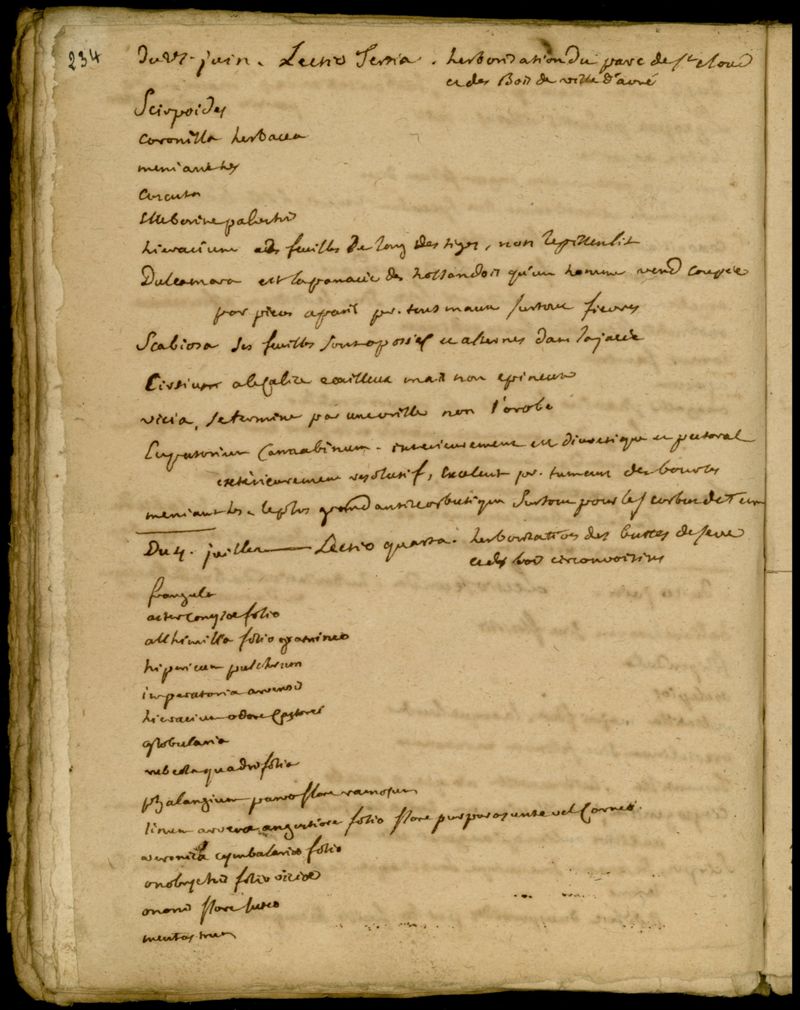 234
juin. Lectio Tertia. herborisation du parc de St cloud
et des Bois de ville d'avré
Scirpoides
coronilla herbacea
menianthes
cicuta
Elleborine palustris
hieracium a des feuilles de long des tiges, non le pissenlit
Dulcamara est la panacée des hollandois qu'un homme vend coupée
par pieces a paris pr. tous maux surtout fievres
Scabiosa ses feuilles sont oposées et alternes dans la jacée
Cirsium a le Calice ecailleux mais non epineux
vicia, se termine par une vrille non l'orobe
Eupatorium Cannabinum. interieurement est diuretique et pectoral
exterieurement resolutif, excelent pr. tumeur des bourses
menianthes le plus grand antiscorbutique surtout pour le scorbut de
Du 4. juillet Lectio quarta. herborisation des buttes de seve
et des bois circonvoisins
frangula
aster conyzae folio
alchimilla folio gramineo
hipericum pulchrum
imperatoria arvensis
hieracium odore Castorei
globularia
rubeola quadrifolia
phalangium parvo flore ramosum
linum arvense angustiore folio flore purpurascente vel Carneo.
veronica cymbalariae folio
onobrychis folio viciae
ononis flore luteo
mentastrum